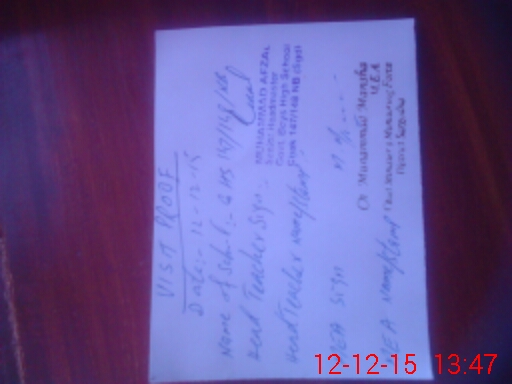 VISIT PROOF
Date:- 12-12-15
Name of School:- GHS 147/148/NB
Head Teacher Sign:-
MUHAMMAD AFZAL
Senior Headmaster
Govt. Boys High School
Chak 147/148 NB (Sgd)
Head Teacher Name/Stamp
MEA Sign
MEA Name/Stamp
M.E.A
Chief Minister's Monitoring Force
District Sargodha
12-12-15 13:47